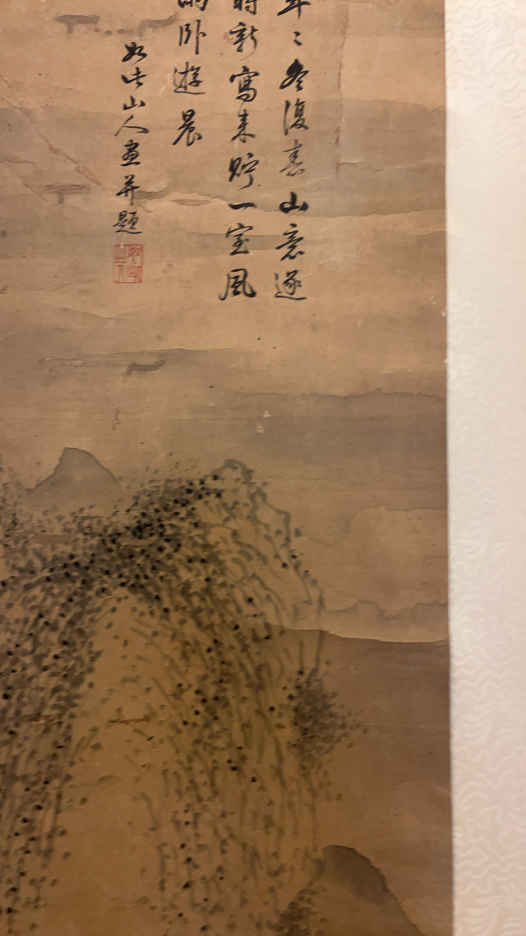 年〻冬復春山意遂
時新寫来貯一室風
雨卧遊晨
如此山人画并題